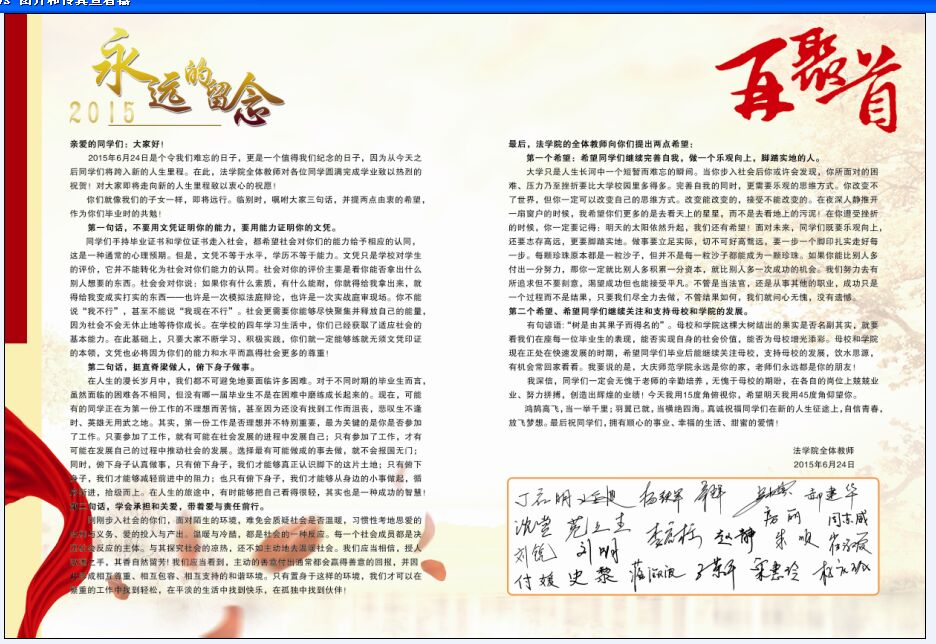 图片和传真查看器
永远的留念
2015
再聚首
亲爱的同学们：大家好！
2015年6月24日是个令我们难忘的日子，更是一个值得我们纪念的日子，因为从今天之
后同学们将跨入新的人生里程。在此，法学院全体教师对各位同学圆满完成学业致以热烈的
祝贺！对大家即将走向新的人生里程致以衷心的祝愿！
你们就像我们的子女一样，即将远行。临别时，嘱咐大家三句话，并提两点由衷的希望，
作为你们毕业时的共勉！
第一句话，不要用文凭证明你的能力，要用能力证明你的文凭。
同学们手持毕业证书和学位证书走入社会，都希望社会对你们的能力给予相应的认同，
这是一种通常的心理预期。但是，文凭不等于水平，学历不等于能力。文凭只是学校对学生
的评价，它并不能转化为社会对你们能力的认同。社会对你的评价主要是看你能否拿出什么
别人想要的东西。社会会对你说：如果你有什么素质，有什么能耐，你就得给我拿出来，就
得给我变成实打实的东西——也许是一次模拟法庭辩论，也许是一次实战庭审现场。你不能
说“我不行”，甚至不能说“我现在不行”。社会更需要你能够尽快聚集并释放自己的能量，
因为社会不会无休止地等待你成长。在学校的四年学习生活中，你们已经获取了适应社会的
基本能力。在此基础上，只要大家不断学习、积极实践，你们就一定能够练就无须文凭印证
的本领，文凭也必将因为你们的能力和水平而赢得社会更多的尊重！
第二句话，挺直脊梁做人，俯下身子做事。
在人生的漫长岁月中，我们都不可避免地要面临许多困难。对于不同时期的毕业生而言，
虽然面临的困难各不相同，但没有哪一届毕业生不是在困难中磨练成长起来的。现在，可能
有的同学正在为第一份工作的不理想而苦恼，甚至因为还没有找到工作而沮丧，悲叹生不逢
时、英雄无用武之地。其实，第一份工作是否理想并不特别重要，最为关键的是你是否参加
了工作。只要参加了工作，就有可能在社会发展的进程中发展自己；只有参加了工作，才有
可能在发展自己的过程中推动社会的发展。选择最有可能做成的事去做，就不会报国无门；
同时，俯下身子认真做事，只有俯下身子，我们才能够真正认识脚下的这片土地；只有俯下
身子，我们才能够减轻前进中的阻力；也只有俯下身子，我们才能够从身边的小事做起，循
序渐进，拾级而上。在人生的旅途中，有时能够把自己看得很轻，其实也是一种成功的智慧！
第三句话，学会承担和关爱，带着爱与责任前行。
刚刚步入社会的你们，面对陌生的环境，难免会质疑社会是否温暖，习惯性考地思爱的
与义务、爱的投入与产出。温暖与冷酷，都是社会的一种反应。每一个社会成员都是决
会反应的主体。与其探究社会的凉热，还不如主动地去温暖社会。我们应当相信，授人
之手，其香自然留芳！我们应当看到，主动的善意付出通常都会赢得善意的回报，并因
成相互尊重、相互包容、相互支持的和谐环境。只有置身于这样的环境，我们才可以在
繁重的工作中找到轻松，在平淡的生活中找到快乐，在孤独中找到伙伴！
最后，法学院的全体教师向你们提出两点希望：
第一个希望：希望同学们继续完善自我，做一个乐观向上，脚踏实地的人。
大学只是人生长河中一个短暂而难忘的瞬间。当你步入社会后你或许会发现，你所面对的困
难、压力乃至挫折要比大学校园里多得多。完善自我的同时，更需要乐观的思维方式。你改变不
了世界，但你一定可以改变自己的思维方式。改变能改变的，接受不能改变的。在夜深人静推开
一扇窗户的时候，我希望你们更多的是去看天上的星星，而不是去看地上的污泥！在你遭受挫折
的时候，你一定要记得：明天的太阳依然升起，我们还有希望！面对未来，同学们既要乐观向上，
还要志存高远，更要脚踏实地。做事要立足实际，切不可好高骛远，要一步一个脚印扎实走好每
一步。每颗珍珠原本都是一粒沙子，但并不是每一粒沙子都能成为一颗珍珠。如果你能比别人多
付出一分努力，那你一定就比别人多积累一分资本，就比别人多一次成功的机会。我们努力去有
所追求但不要刻意，渴望成功但也能接受平凡。不管是当法官，还是从事其他的职业，成功只是
一个过程而不是结果，只要我们尽全力去做，不管结果如何，我们就问心无愧，没有遗憾。
第二个希望、希望同学们继续关注和支持母校和学院的发展。
有句谚语：“树是由其果子而得名的”。母校和学院这棵大树结出的果实是否名副其实，就要
看我们在座每一位毕业生的表现，能否实现自身的社会价值，能否为母校增光添彩。母校和学院
现在正处在快速发展的时期，希望同学们毕业后能继续关注母校，支持母校的发展，饮水思源，
有机会常回家看看。我要说的是，大庆师范学院永远是你的家，老师们永远都是你的朋友！
我深信，同学们一定会无愧于老师的辛勤培养，无愧于母校的期盼，在各自的岗位上兢兢业
业、努力拼搏，创造出辉煌的业绩！今天我用15度角俯视你，希望明天我用45度角仰望你。
鸿鹄高飞，当一举千里；羽翼已就，当横绝四海。真诚祝福同学们在新的人生征途上，自信青春，
放飞梦想。最后祝同学们，拥有顺心的事业、幸福的生活、甜蜜的爱情！
法学院全体教师
2015年6月24日
刘明
赵静
朱
付媛 史黎